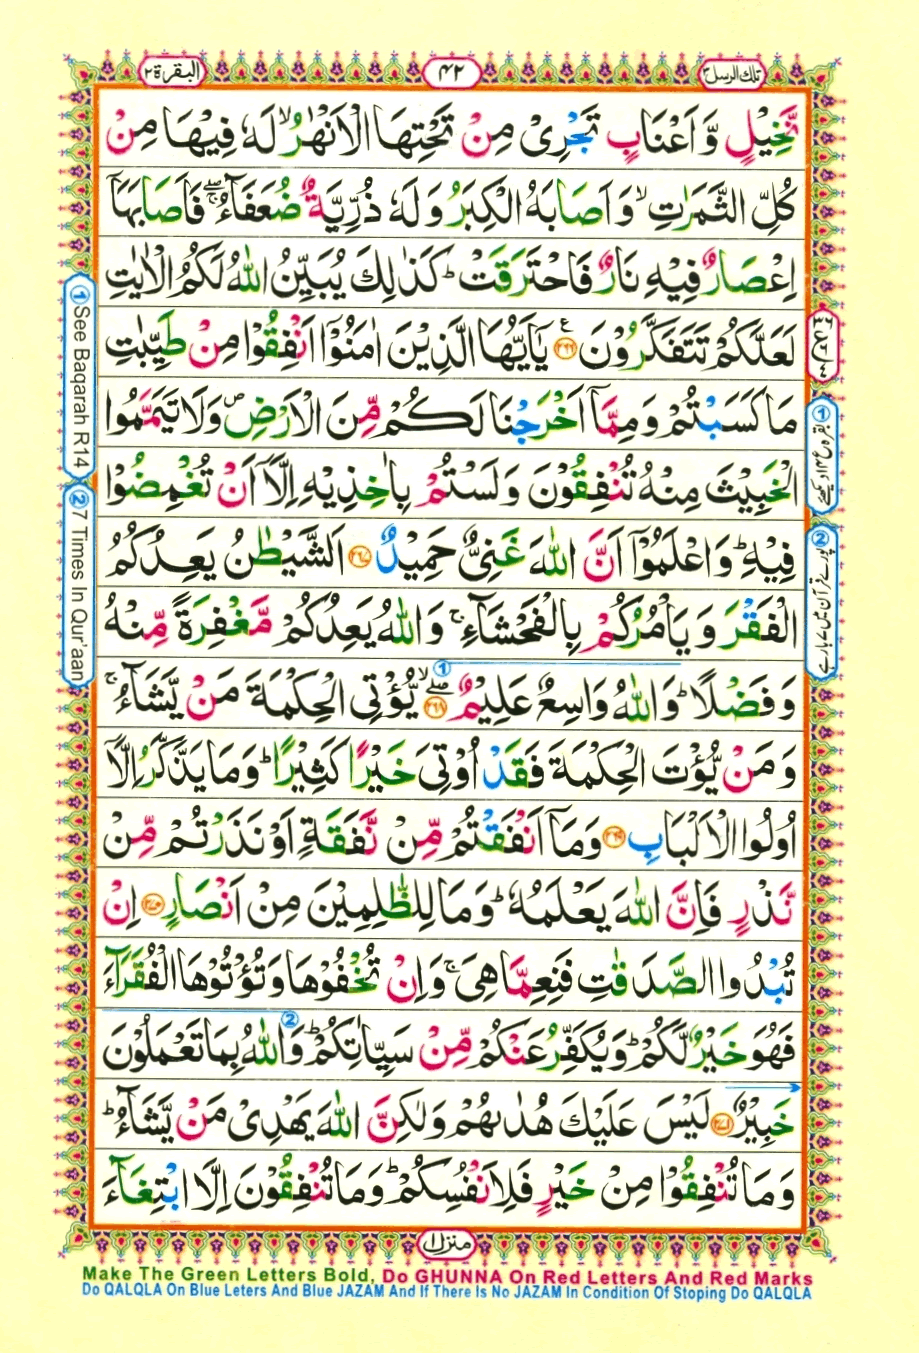 البقرة ٢
٤٢
تلك الرسل ٣
نَّخِيْلٍ وَّ اَعْنَابٍ تَجْرِىْ مِنْ تَحْتِهَا الْاَنْهٰرُ ۙ لَهٗ فِيْهَا مِنْ
كُلِّ الثَّمَرٰتِ ۙ وَ اَصَابَهُ الْكِبَرُ وَ لَهٗ ذُرِّيَّةٌ ضُعَفَآءُ ۖۚ فَاَصَابَهَاۤ
اِعْصَارٌ فِيْهِ نَارٌ فَاحْتَرَقَتْ ؕ كَذٰلِكَ يُبَيِّنُ اللّٰهُ لَكُمُ الْاٰيٰتِ
لَعَلَّكُمْ تَتَفَكَّرُوْنَ ﴿۲۶۶﴾ يٰۤاَيُّهَا الَّذِيْنَ اٰمَنُوْۤا اَنْفِقُوْا مِنْ طَيِّبٰتِ
مَا كَسَبْتُمْ وَ مِمَّاۤ اَخْرَجْنَا لَكُمْ مِّنَ الْاَرْضِ ۪ وَ لَا تَيَمَّمُوا
الْخَبِيْثَ مِنْهُ تُنْفِقُوْنَ وَ لَسْتُمْ بِاٰخِذِيْهِ اِلَّاۤ اَنْ تُغْمِضُوْا
فِيْهِ ؕ وَ اعْلَمُوْۤا اَنَّ اللّٰهَ غَنِىٌّ حَمِيْدٌ ﴿۲۶۷﴾ اَلشَّيْطٰنُ يَعِدُكُمُ
الْفَقْرَ وَ يَاْمُرُكُمْ بِالْفَحْشَآءِ ۚ وَ اللّٰهُ يَعِدُكُمْ مَّغْفِرَةً مِّنْهُ
وَ فَضْلًا ؕ وَ اللّٰهُ وَاسِعٌ عَلِيْمٌ ﴿۲۶۸﴾ ۖۙ يُّؤْتِى الْحِكْمَةَ مَنْ يَّشَآءُ ۚ
وَ مَنْ يُّؤْتَ الْحِكْمَةَ فَقَدْ اُوْتِىَ خَيْرًا كَثِيْرًا ؕ وَ مَا يَذَّكَّرُ اِلَّاۤ
اُولُوا الْاَلْبَابِ ﴿۲۶۹﴾ وَ مَاۤ اَنْفَقْتُمْ مِّنْ نَّفَقَةٍ اَوْ نَذَرْتُمْ مِّنْ
نَّذْرٍ فَاِنَّ اللّٰهَ يَعْلَمُهٗ ؕ وَ مَا لِلظّٰلِمِيْنَ مِنْ اَنْصَارٍ ﴿۲۷۰﴾ اِنْ
تُبْدُوا الصَّدَقٰتِ فَنِعِمَّا هِىَ ۚ وَ اِنْ تُخْفُوْهَا وَ تُؤْتُوْهَا الْفُقَرَآءَ
فَهُوَ خَيْرٌ لَّكُمْ ؕ وَ يُكَفِّرُ عَنْكُمْ مِّنْ سَيِّاٰتِكُمْ ؕ وَ اللّٰهُ بِمَا تَعْمَلُوْنَ
خَبِيْرٌ ﴿۲۷۱﴾ لَيْسَ عَلَيْكَ هُدٰىهُمْ وَ لٰكِنَّ اللّٰهَ يَهْدِىْ مَنْ يَّشَآءُ ؕ
وَ مَا تُنْفِقُوْا مِنْ خَيْرٍ فَلِاَنْفُسِكُمْ ؕ وَ مَا تُنْفِقُوْنَ اِلَّا ابْتِغَآءَ
① See Baqarah R14
② 7 Times In Qur'aan
منزل ١
Make The Green Letters Bold, Do GHUNNA On Red Letters And Red Marks
Do QALQLA On Blue Leters And Blue JAZAM And If There Is No JAZAM In Condition Of Stoping Do QALQLA